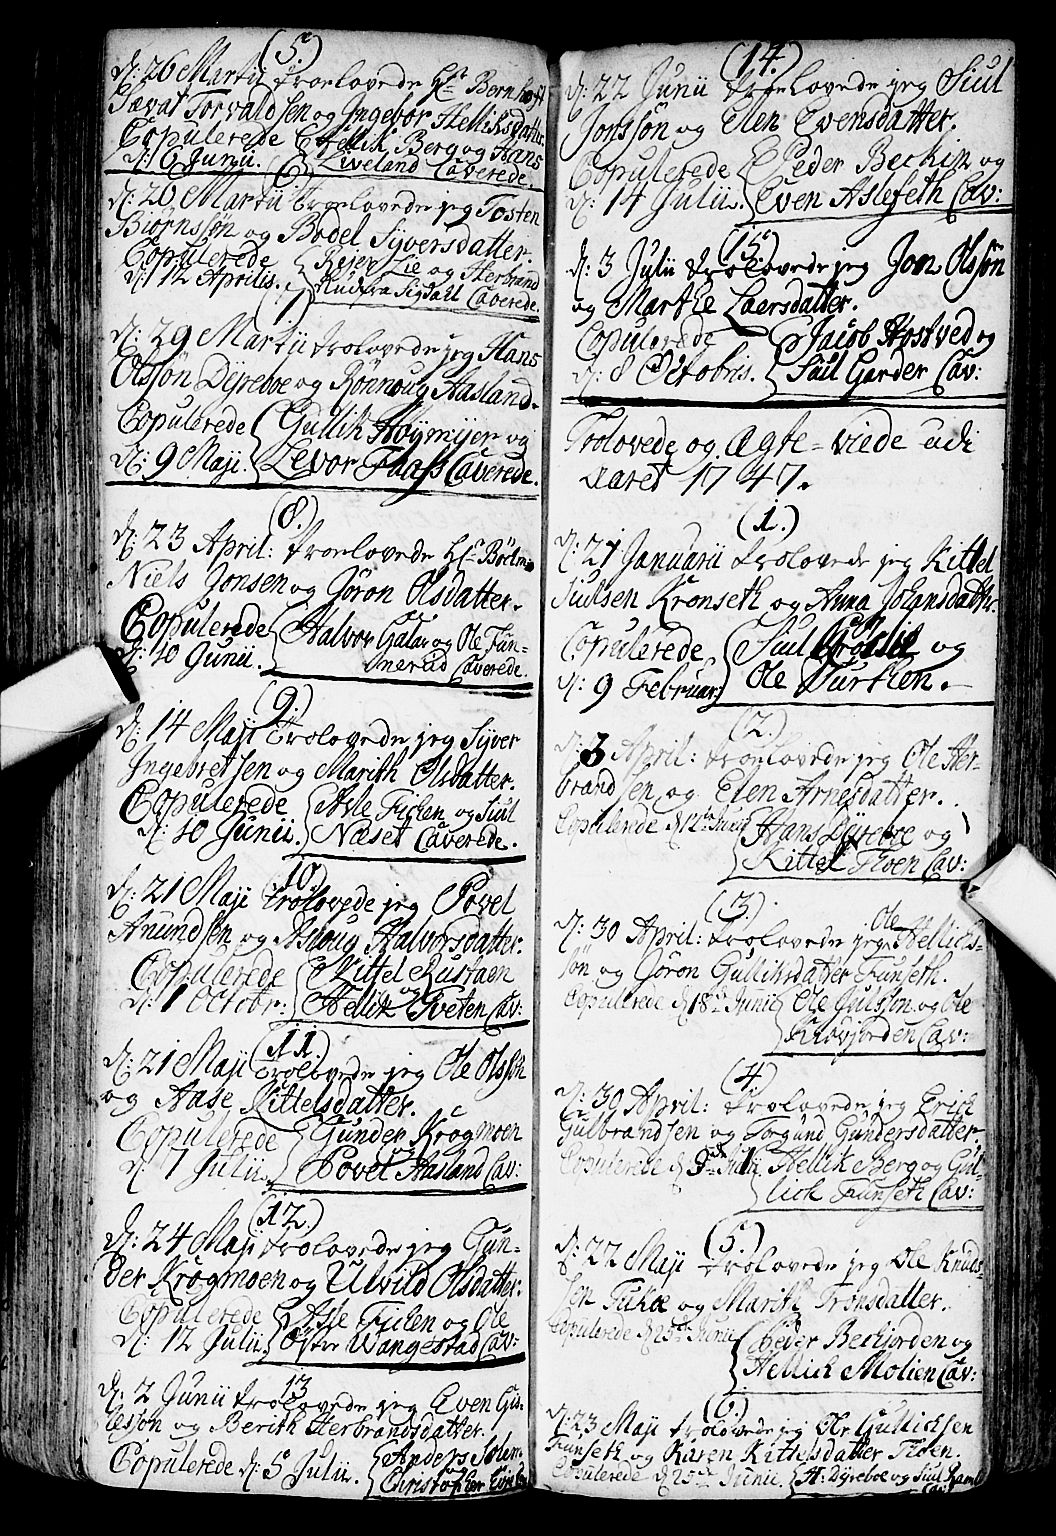 (5.)
d: 26 Martii troelovede Hr Bernhoft
Sævat Torvaldsen og Ingebor Helliksdatter
Copulerede { Hellik Berg og Hans
d: 6 Junii. { Liveland Caverede.
(6.)
d: 26 Martii troelovede jeg Tosten
Biørnssøn og Bodel Syversdatter.
Copulerede { Rejer Lie og Herbrand
d: 12 Aprilis. { Rudfra Sigdahl Caverede.
(7.)
d: 29 Martii trolovede jeg Hans
Olssøn Dyreboe og Rønnoug Aasland.
Copulerede { Gullik Høymyer og
d: 9 Maji. { Levor Flaass Caverede.
(8.)
d: 23 April: troelovede Hr
Niels Jonsen og Jøron Olsdatter.
Copulerede { Halvor og Ole Fun-
d: 10 Junii. { nerud Caverede.
(9.)
d: 14 Maji trolovede jeg Syver
Ingebretsen og Marith Olsdatter.
Copulerede { Asle og Siul
d: 10 Junii. { Næset Caverede.
(10.)
d: 21 Maji trolovede jeg Povel
Anundsen og Asloug Halvorsdatter.
Copulerede { Kittel Rustaen
d: 1 Octobr: { og Hellik Tveten Cav:
(11.)
d: 21 Maji trolovede jeg Ole Olssøn
og Aase Kittelsdatter.
Copulerede { Gunder Krogmoen
d: 7 Julii. { Povel Aasland Cav:
(12.)
d: 24 Maji trolovede jeg Gun-
der Krogmoen og Ulvild Olsdatter.
Copulerede { Asle og Ole
d: 12 Julii. { Øster Wangestad Cav:
13
d: 2 Junii trolovede jeg Even Gis-
lessøn og Berith Herbrandsdatter.
Copulerede d: 5 Julii. { Anders
{ Christopher
(14.)
d: 22 Junii troelovede jeg Siul
Jonssøn og Elen Evensdatter.
Copulerede { Peder Beckin og
d: 14 Julii. { Even Aslefeth Cav:
(15.)
d: 3 Julii trolovede jeg Jon Olssøn
og Marthe Laersdatter.
Copulerede { Jacob Hostved og
d: 8 Octobris. { Siul Garder Cav:
Trolovede og Ægte-viede udi
Aaret 1747.
(1.)
d: 21 Januarii trolovede jeg Kittel
Siulsen Kronseth og Anna Johansdatter.
Copulerede { Siul og
d: 9 Februar: { Ole Durklen.
(2.)
d: 3 April: troelovede jeg Ole Her-
brandsen og Elen Arnesdatter.
Copulerede d 12te Junii { Hans Dyreboe og
{ Kittel Floen Cav:
(3.)
d: 30 April: trolovede jeg Ole Hellichs-
søn og Jøron Gulliksdatter Funseth.
Copulerede d 18de Junii { Ole Julssøn og Ole
{ Krovjorden Cav:
(4.)
d: 30 April: trolovede jeg Erick
Gulbrandsen og Torgund Gundersdatter.
Copulerede d 9de { Hellik Berg og Gul-
lick Funseth Cav:
(5.)
d: 22 Maji trolovede jeg Ole Knuds-
sen og Marith Tronsdatter.
Copulerede d 25de Junii { Peder Beckjorden og
{ Hellich Molien Cav:
(6.)
d: 23 Maji trolovede jeg Ole Gullichsen
Funseth og Karen Kittelsdatter
Copulerede d 25de Junii. { H: Dyreboe og Siul
Cav: